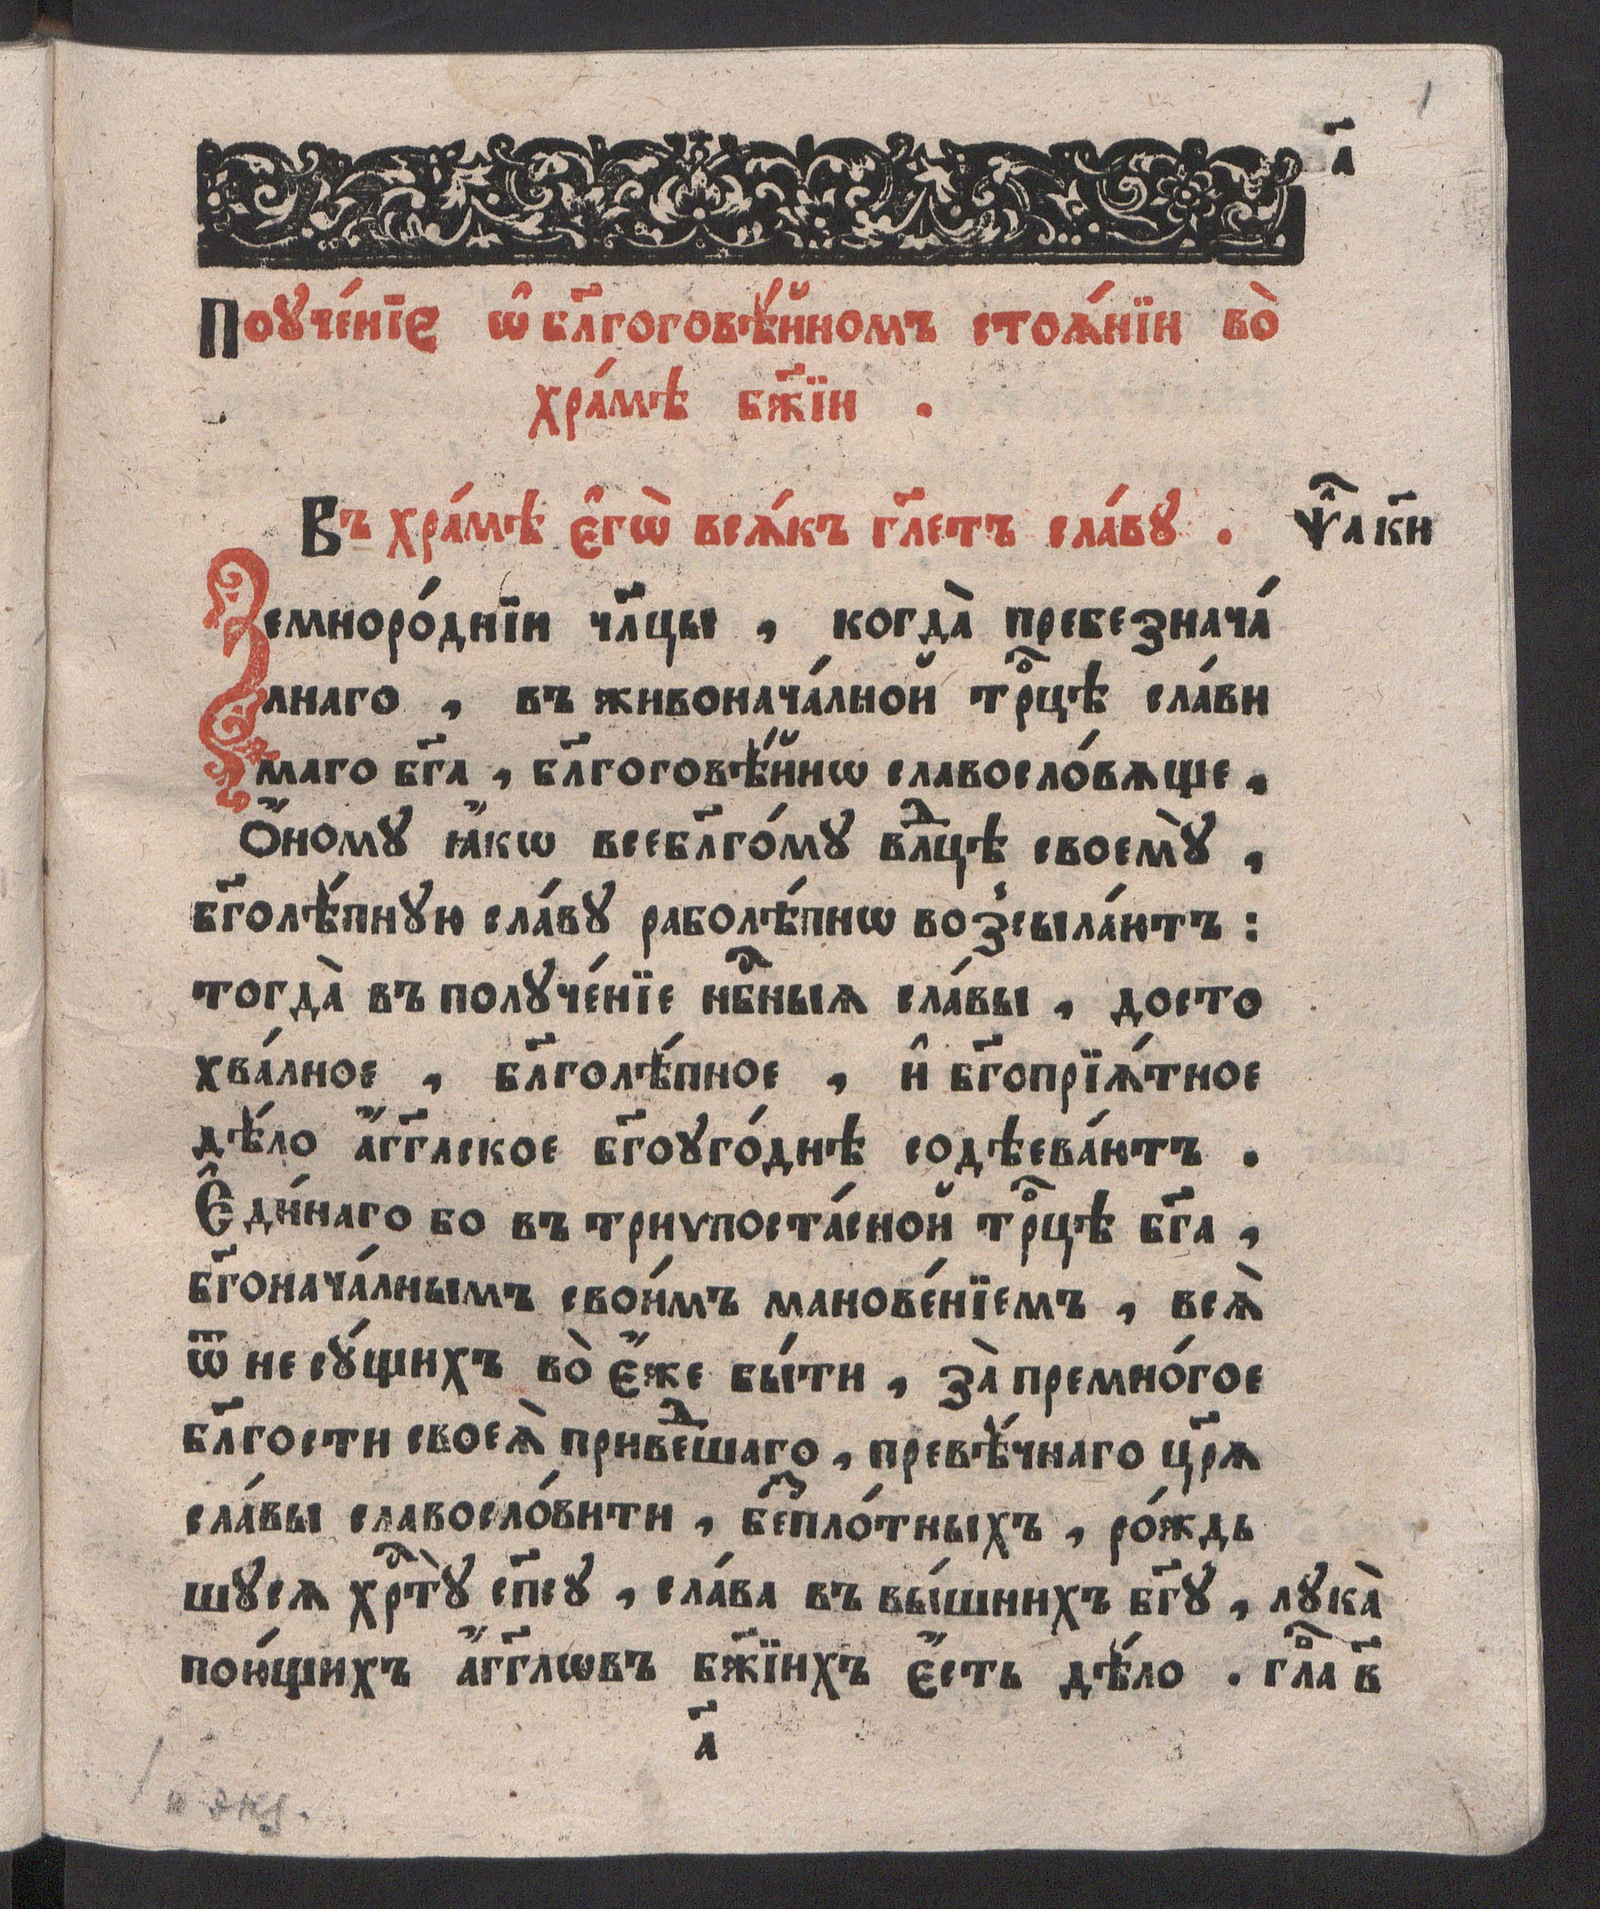 1
а҃
Поꙋче́нїе ѡ҆ бл҃гоговѣ́йномъ стоѧ́нїи во̀
хра́мѣ бж҃їи .
Въ хра́мѣ є҆гѡ̀ всѧ́къ гл҃етъ сла́вꙋ . ѱⷶ҇а к҃и
Земноро́днїи чл҃цы , когда̀ пребезнача́
лнаго , въ живонача́лной трⷪ҇цѣ сла́ви
маго бг҃а , бл҃гоговѣ́йнѡ славосло́вѧще ,
Ѻ҆́номꙋ ꙗ҆́кѡ всебл҃го́мꙋ влⷣцѣ своемꙋ̀ ,
бг҃олѣ́пнꙋю сла́вꙋ раболѣ́пнѡ возсыла́ютъ :
тогда̀ въ полꙋче́нїе нбⷭ҇ныѧ сла́вы , досто
хва́лное , бл҃голѣ́пное , и҆ бг҃опрїѧ́тное
дѣ́ло а҆́гг҃лское бг҃оꙋго́днѣ содѣева́ютъ .
Є҆ди́наго бо въ триѵпоста́сной трⷪ҇цѣ бг҃а ,
бг҃онача́лнымъ свои́мъ манове́нїемъ , всѧ̀
ѿ не сꙋ́щихъ во̀ є҆́же бы́ти , за̀ премно́гое
бл҃гости своеѧ̀ приве́дшаго , превѣ́чнаго цр҃ѧ
сла́вы славосло́вити , беⷥпло́тныхъ , ро́ждь
шꙋсѧ хрⷭ҇тꙋ̀ сп҃сꙋ , сла́ва въ вы́шнихъ бг҃ꙋ , лꙋка̀
пою́щихъ а҆́гг҃лѡвъ бж҃їихъ є҆́сть дѣ́ло . глаⷡ҇ в҃
а҃